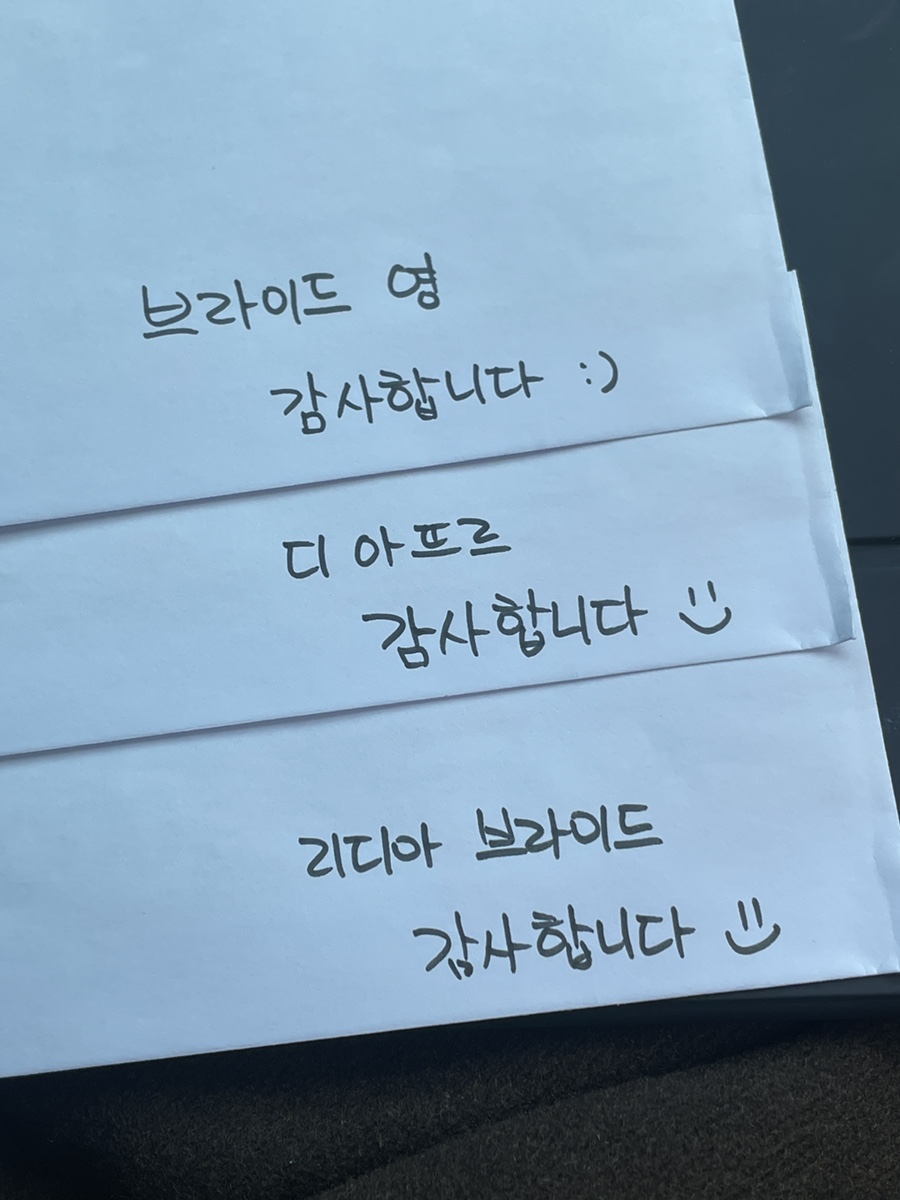 브라이드 영
감사합니다 :)
디 아프르
감사합니다
리디아 브라이드
감사합니다